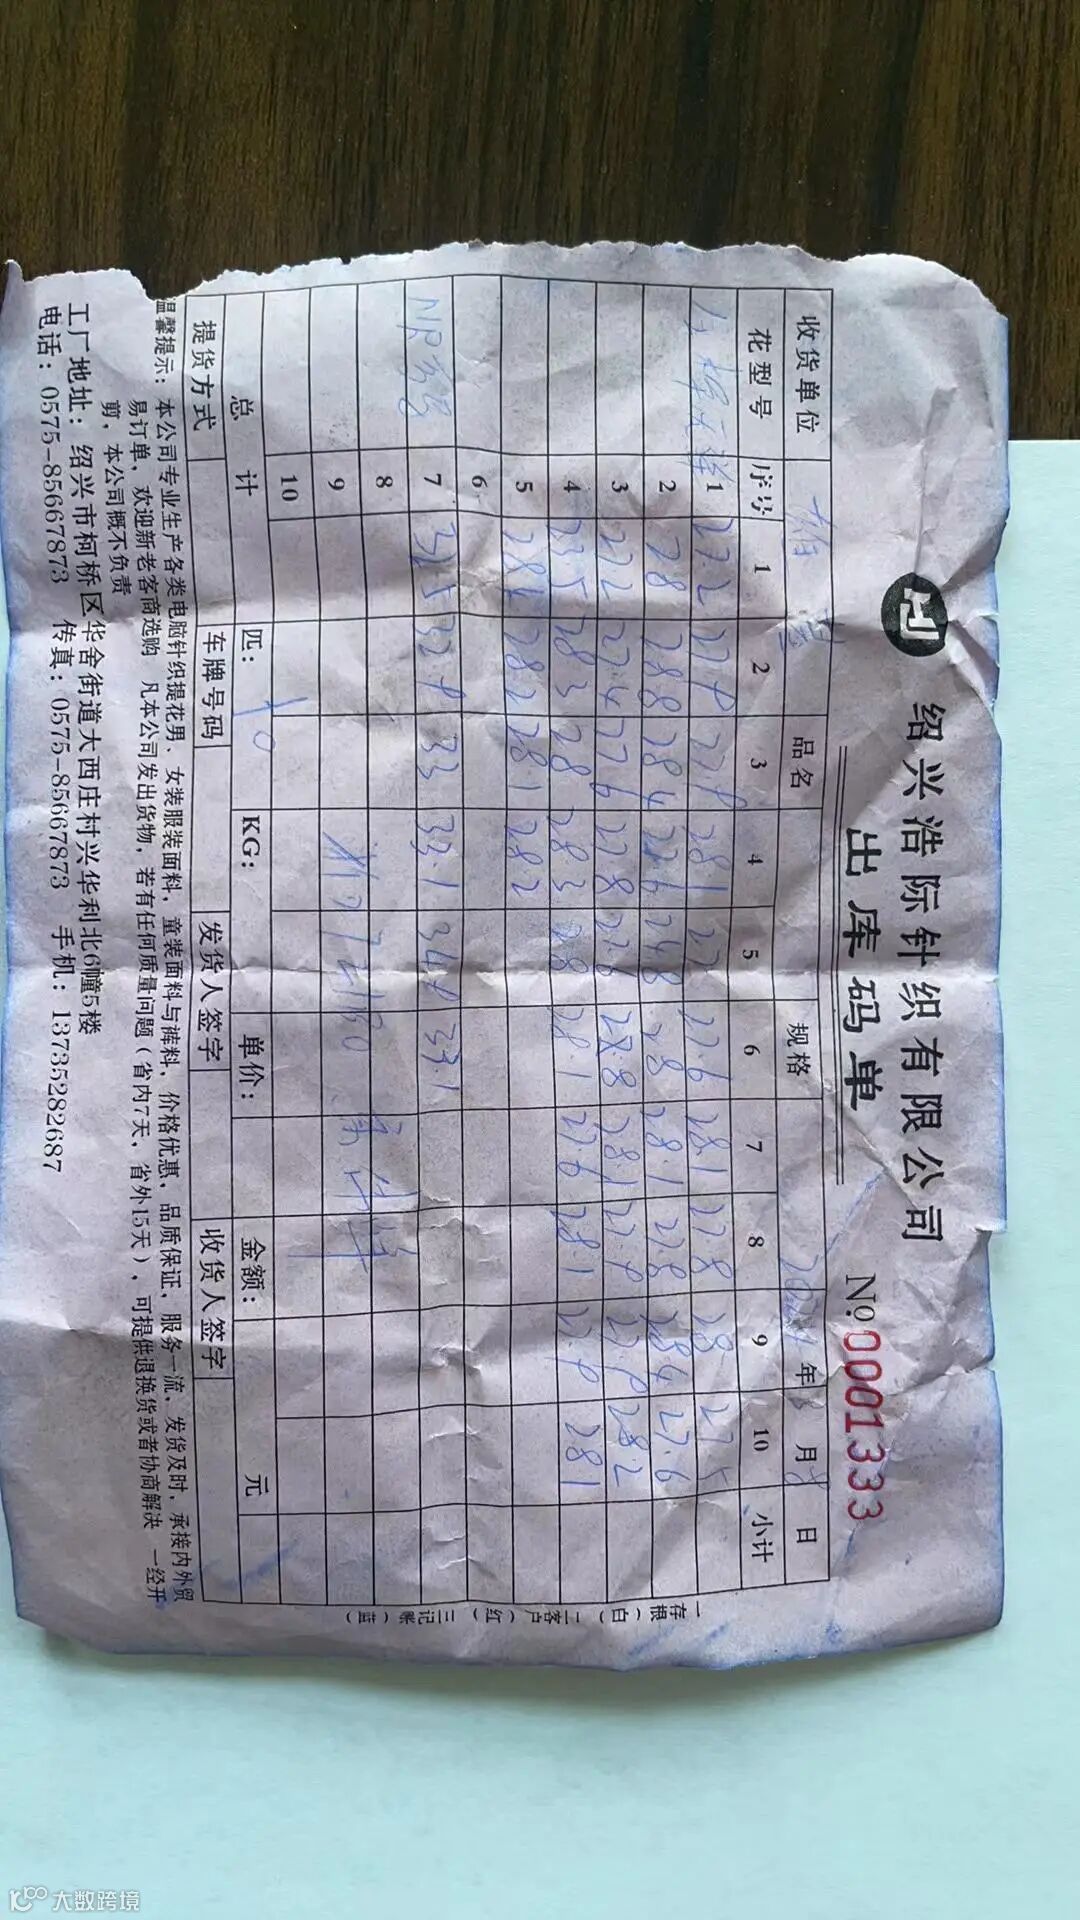 绍兴浩际针织有限公司
出库码单
№0001333
收货单位 品名 规格 2024年 月 日
花型号 序号 1 2 3 4 5 6 7 8 9 10 小计
1 27.2 27.9 27.9 28.1 27.6 28.1 27.8 28 27.5
2 28 28.8 28.4 24.8 28 28.1 27.8 28.4 27.6
3 27.2 27.4 27.6 27.8 27.6 27.8 28.1 27.9 27.9 28.2
4 23.5 28.3 28 28.3 28 28.1 27.6 28.1 27.9 28.1
5 28.2 28.1 28.2
6
7 32.5 32.9 33 33.1 34.9 33.1
8
9
10
总计 匹: KG: 单价: 金额: 元
提货方式 车牌号码 发货人签字 收货人签字
温馨提示: 本公司专业生产各类电脑针织提花男、女装服装面料,童装面料与裤料,价格优惠,品质保证,服务一流,发货及时,承接内外贸
易订单,欢迎新老客商选购 凡本公司发出货物,若有任何质量问题(省内7天,省外15天),可提供退换货或者协商解决 一经开
剪,本公司概不负责
工厂地址: 绍兴市柯桥区华舍街道大西庄村兴华利北6幢5楼
电话: 0575-85667873 传真: 0575-85667873 手机: 13735282687
一存根(白) 二客户(红) 三记账(蓝)
大数跨境